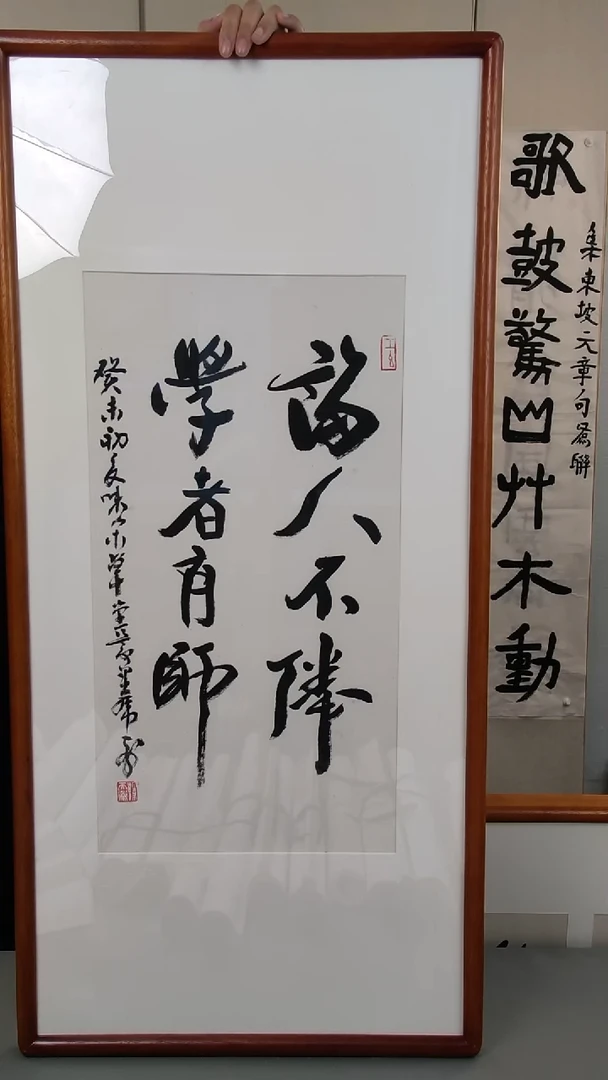 集東坡元章句為聯
歌鼓驚山艸木動
誨人不倦
學者有師
癸未初夏